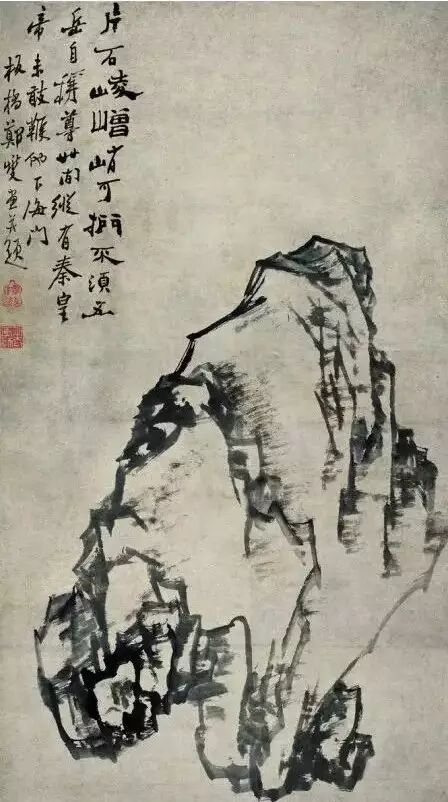 片石崚嶒峭可捫不須五
岳自稱尊世間縱有秦皇
帝未敢鞭他下海門
板橋鄭燮畫并題